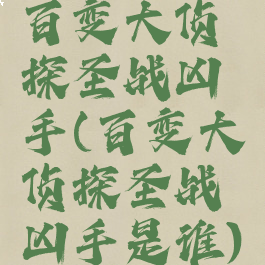 百变大侦
探圣战凶
手(百变大
侦探圣战
凶手是谁)